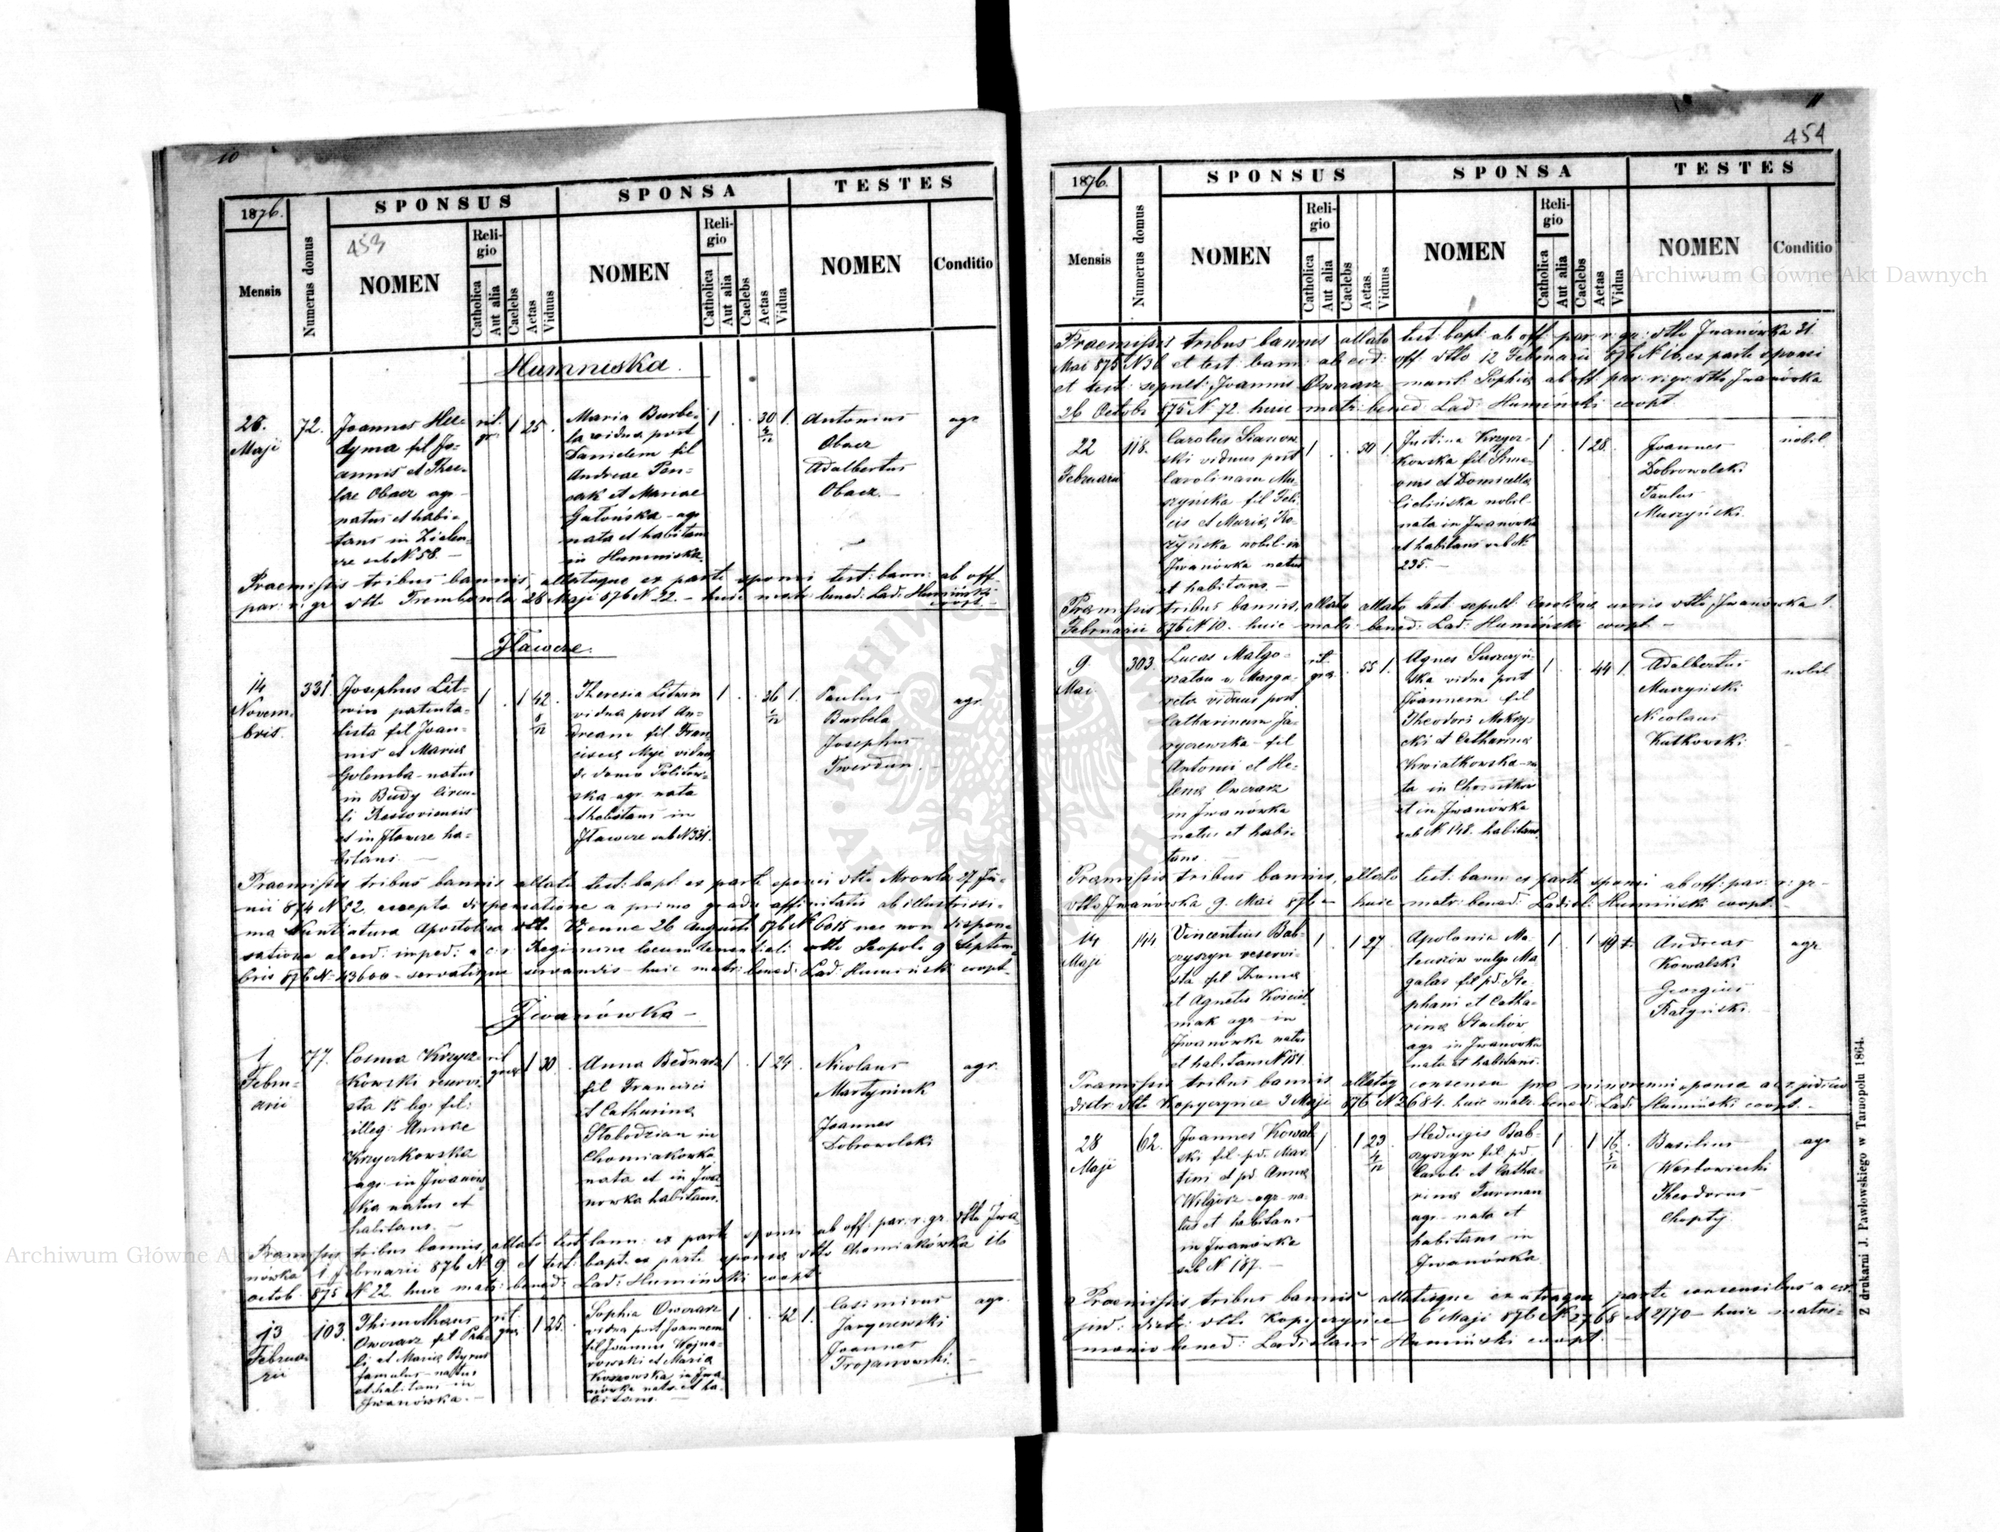 10
1876.
SPONSUS
SPONSA
TESTES
Mensis
Numerus domus
453
NOMEN
Religio
Catholica
Aut alia
Caelebs
Aetas
Viduus
NOMEN
Religio
Catholica
Aut alia
Caelebs
Aetas
Vidua
NOMEN
Conditio
Humniska
26.
Maji
72.
Joannes
dyma fil Jo-
annis et Thec-
lae Obacz agr
natus et habi-
tans in Zielen-
cze sub N 58. —
rit.
gr.
1
25.
Maria Burbe-
la vidua post
Danielem fil
Andreae Pen-
cak et Mariae
Gatońska agr
nata et habitans
in Humniska.
1
30
1.
Antonius
Obacz
Adalbertus
Obacz. —
agr
Praemissis tribus bannis, allatoque ex parte sponsi test: bann: ab off
par. r. gr dtto Trembowla 28 Maji 876 N 22. — huic matr: bened: Lad: Humiński
coopt.
Iławcze.
14
Novem-
bris.
331.
Josephus Lit-
win patenta-
lista fil Joan-
nis et Mariae
Golemba natus
in Budy Circu-
li Ressoviensis
et in Iławcze ha-
bitans. —
1
1
42
8/12
Theresia Litwin
vidua post An-
dream fil Fran-
cisca Maji vidua
de domo Politow-
ska agr. nata
et habitans in
Iławcze sub N 331.
1
36
1.
Paulus
Burbela
Josephus
Twerdun. —
agr.
Praemissis tribus bannis allato test: bapt: ex parte sponsi dtto Mrowla 27 Ju-
nii 874 N 82 accepta dispensatione a primo gradu affinitatis ab illustrissi-
ma Nuntiatura Apostolica dtto Vienne 26 Augusti 876 N 6015 nec non dispen-
satione ab eod: imped: a c. r. Regimine locumtenentiali dtto Leopoli 9 Septem-
bris 876 N 43600 — servatisque servandis huic matr: bened: Lad: Humiński coopt.
Iwanówka —
1
Febru-
arii
77.
Cosma Krzycz-
kowski reservi-
sta 15 leg: fil:
illeg. Annae
Krzyczkowska
agr in Iwanów-
ka natus et
habitans. —
rit
graec
1
30
Anna Bednarz
fil Francisci
et Catharina
Słobodzian in
Chomiakówka
nata et in Iwa-
nowka habitans.
1
1
24
Nicolaus
Martyniuk
Joannes
Dobrowolski
agr
Praemissis tribus bannis, allato test: bann: ex parte sponsi ab off. par. r. gr. dtto Iwa-
nówka 1 februarii 876 N 9 et test: bapt: ex parte sponsa dtto Chomiakówka 16
octob. 875 N 22 huic matr: bened: Lad: Humiński coopt
13
Februa-
rii
103.
Thimotheus
Owczarz fil Pau-
li et Maria
famulus natus
et habitans in
Iwanówka. —
rit
graec
1
25.
Sophia Owczarz
vidua post Joannem
fil Joannis Wojna-
rowski et Maria
Kossowska in Iwa-
nówka nata et ha-
bitans. —
1
42
1.
Casimirus
Jaryczewski
Joannes
Trojanowski
agr.
11
454
1876.
SPONSUS
SPONSA
TESTES
Mensis
Numerus domus
NOMEN
Religio
Catholica
Aut alia
Caelebs
Aetas.
Viduus
NOMEN
Religio
Catholica
Aut alia
Caelebs
Aetas
Vidua
NOMEN
Conditio
Praemissis tribus bannis allato test bapt: ab off. par. r. gr: dtto Iwanówka 31
Mai 875 N 36 et test: bann: ab eod: off dtto 12 Februarii 876 N 16 ex parte sponsi
et test: sepult: Joannis Owczarz marit: Sophia ab off: par. r. gr. dtto Iwanówka
26 Octobr 875 N 72 huic matr: bened Lad: Humiński coopt
22
Februarii
118.
Carolus
ski viduus post
Carolinam Mu-
szyńska fil Feli-
cis et Maria
nobil in
Iwanówka natus
et habitans —
1
50
1.
Justina Krzycz-
kowska fil Sime-
onis et Domicella
Cielińska nobil
nata in Iwanówka
et habitans sub N
235. —
1
1
28.
Joannes
Dobrowolski
Paulus
Muszyński
nobil.
Praemissis tribus bannis, allato test: sepult: Carolina uxoris dtto Iwanówka 1.
Februarii 876 N 10. huic matr: bened: Lad: Humiński coopt. —
9
Mai
303.
Lucas Malgo-
Marga-
reta viduus post
Catharinam Ja-
ryczewska fil
Antonii et He-
lena Owczarz
in Iwanówka
natus et habi-
tans. —
rit.
gra
55
1.
Agnes
ska vidua post
Joannem fil
Theodori Mokrzy-
cki et Catharina
Kwiatkowska na-
ta in Chorostkow
et in Iwanówka
sub N 148. habitans
1
44
1.
Adalbertus
Muszyński
Nicolaus
Kutkowski
nobil
Praemissis tribus bannis, allato test: bann: ex parte sponsi ab off: par: r: gr
dtto Iwanówka 9. Mai 876 — huic matr: bened: Ladisl: Humiński coopt. —
14
Maji
144
Vincentius Bab-
czyszyn reservi-
sta fil Thoma
et Agnetis Kościel-
niak agr in
Iwanówka natus
et habitans N 151.
1
1
27.
Apolonia Ma-
teuszów vulgo Ma-
galas fil pd. Ste-
phani et Catha-
rina Stachów
agr in Iwanówka
nata et habitans.
1
1
19
Andreas
Kowalski
Georgius
Ratyński
agr
Praemissis tribus bannis allatoq consensu pro minorenni sponsa a c. r. judicio
distr: dtto Kopyczynce 3 Maji 876 N 2684. huic matr: bened: Lad: Humiński coopt. —
28
Maji
62.
Joannes Kowal-
ski fil. pd. Mar-
tini et pd Anna
Wilgosz agr na-
tus et habitans
in Iwanówka
sub N 187. —
1
1
23
4/12
Hedvigis Bab-
czyszyn fil pd
Caroli et Catha-
rina Furman
agr nata et
habitans in
Iwanówka
1
1
16
5/12
Basilius
Werbowiecki
Theodorus
Chopty
agr
Praemissis tribus bannis allatisque ex utraque parte consensibus a c. r.
jud: distr: dtto Kopyczynce 6 Maji 876 N 2768 et 2770 — huic matri-
monio bened: Ladislaus Humiński coopt
Z drukarni J. Pawłowskiego w Tarnopolu 1864.
Archiwum Główne Akt Dawnych
Archiwum Główne Ak